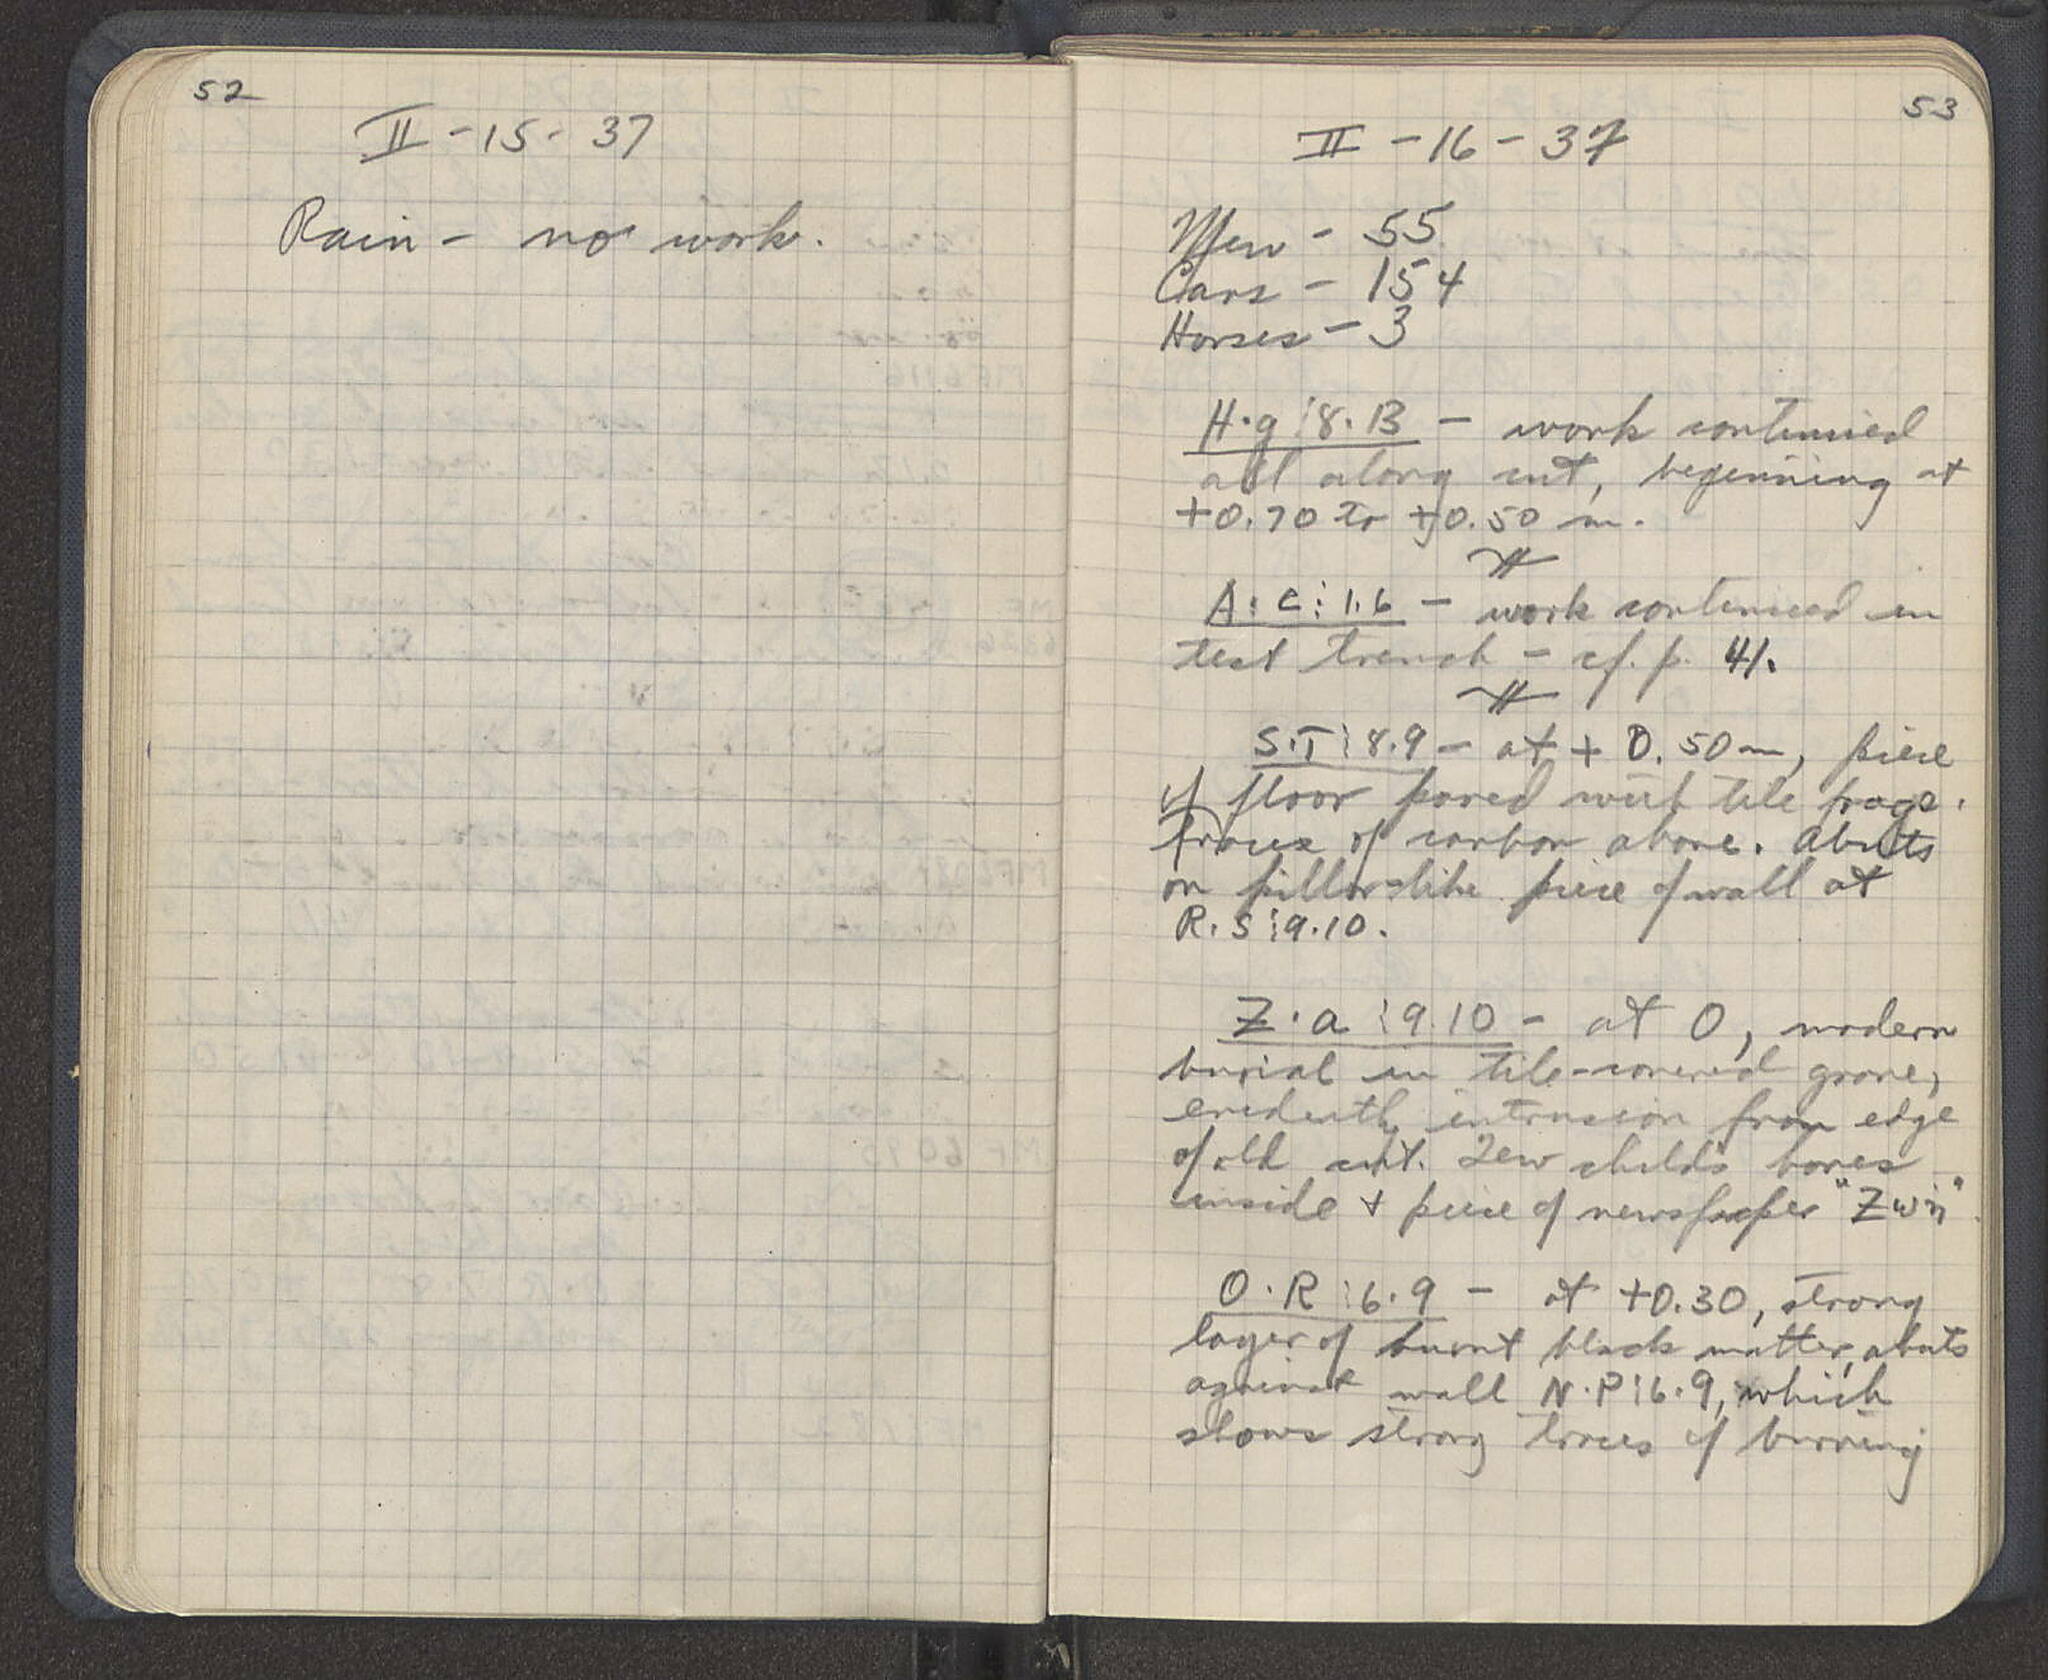 52
II - 15 - 37
Rain - no work.
53
II - 16 - 37
Men - 55
Cars - 154
Horses - 3
H·g⋮8·13 - work continued
all along cut, beginning at
+0.70 to +0.50 m.
A:C⋮1.6 - work continued in
test trench - cf. p. 41.
S.T⋮8.9 - at + 0.50 m, piece
of floor paved with tile frags.
Traces of carbon above. Abutts
on pillar-like piece of wall at
R.S⋮9.10.
Z·a⋮9.10 - at 0, modern
burial in tile-covered grave,
evidently intrusion from edge
of old cut. Few childs bones
inside + piece of newspaper "Ζωή"
O·R⋮6·9 - at +0.30, strong
layer of burnt black matter, abuts
against wall N·P⋮6·9, which
shows strong traces of burning